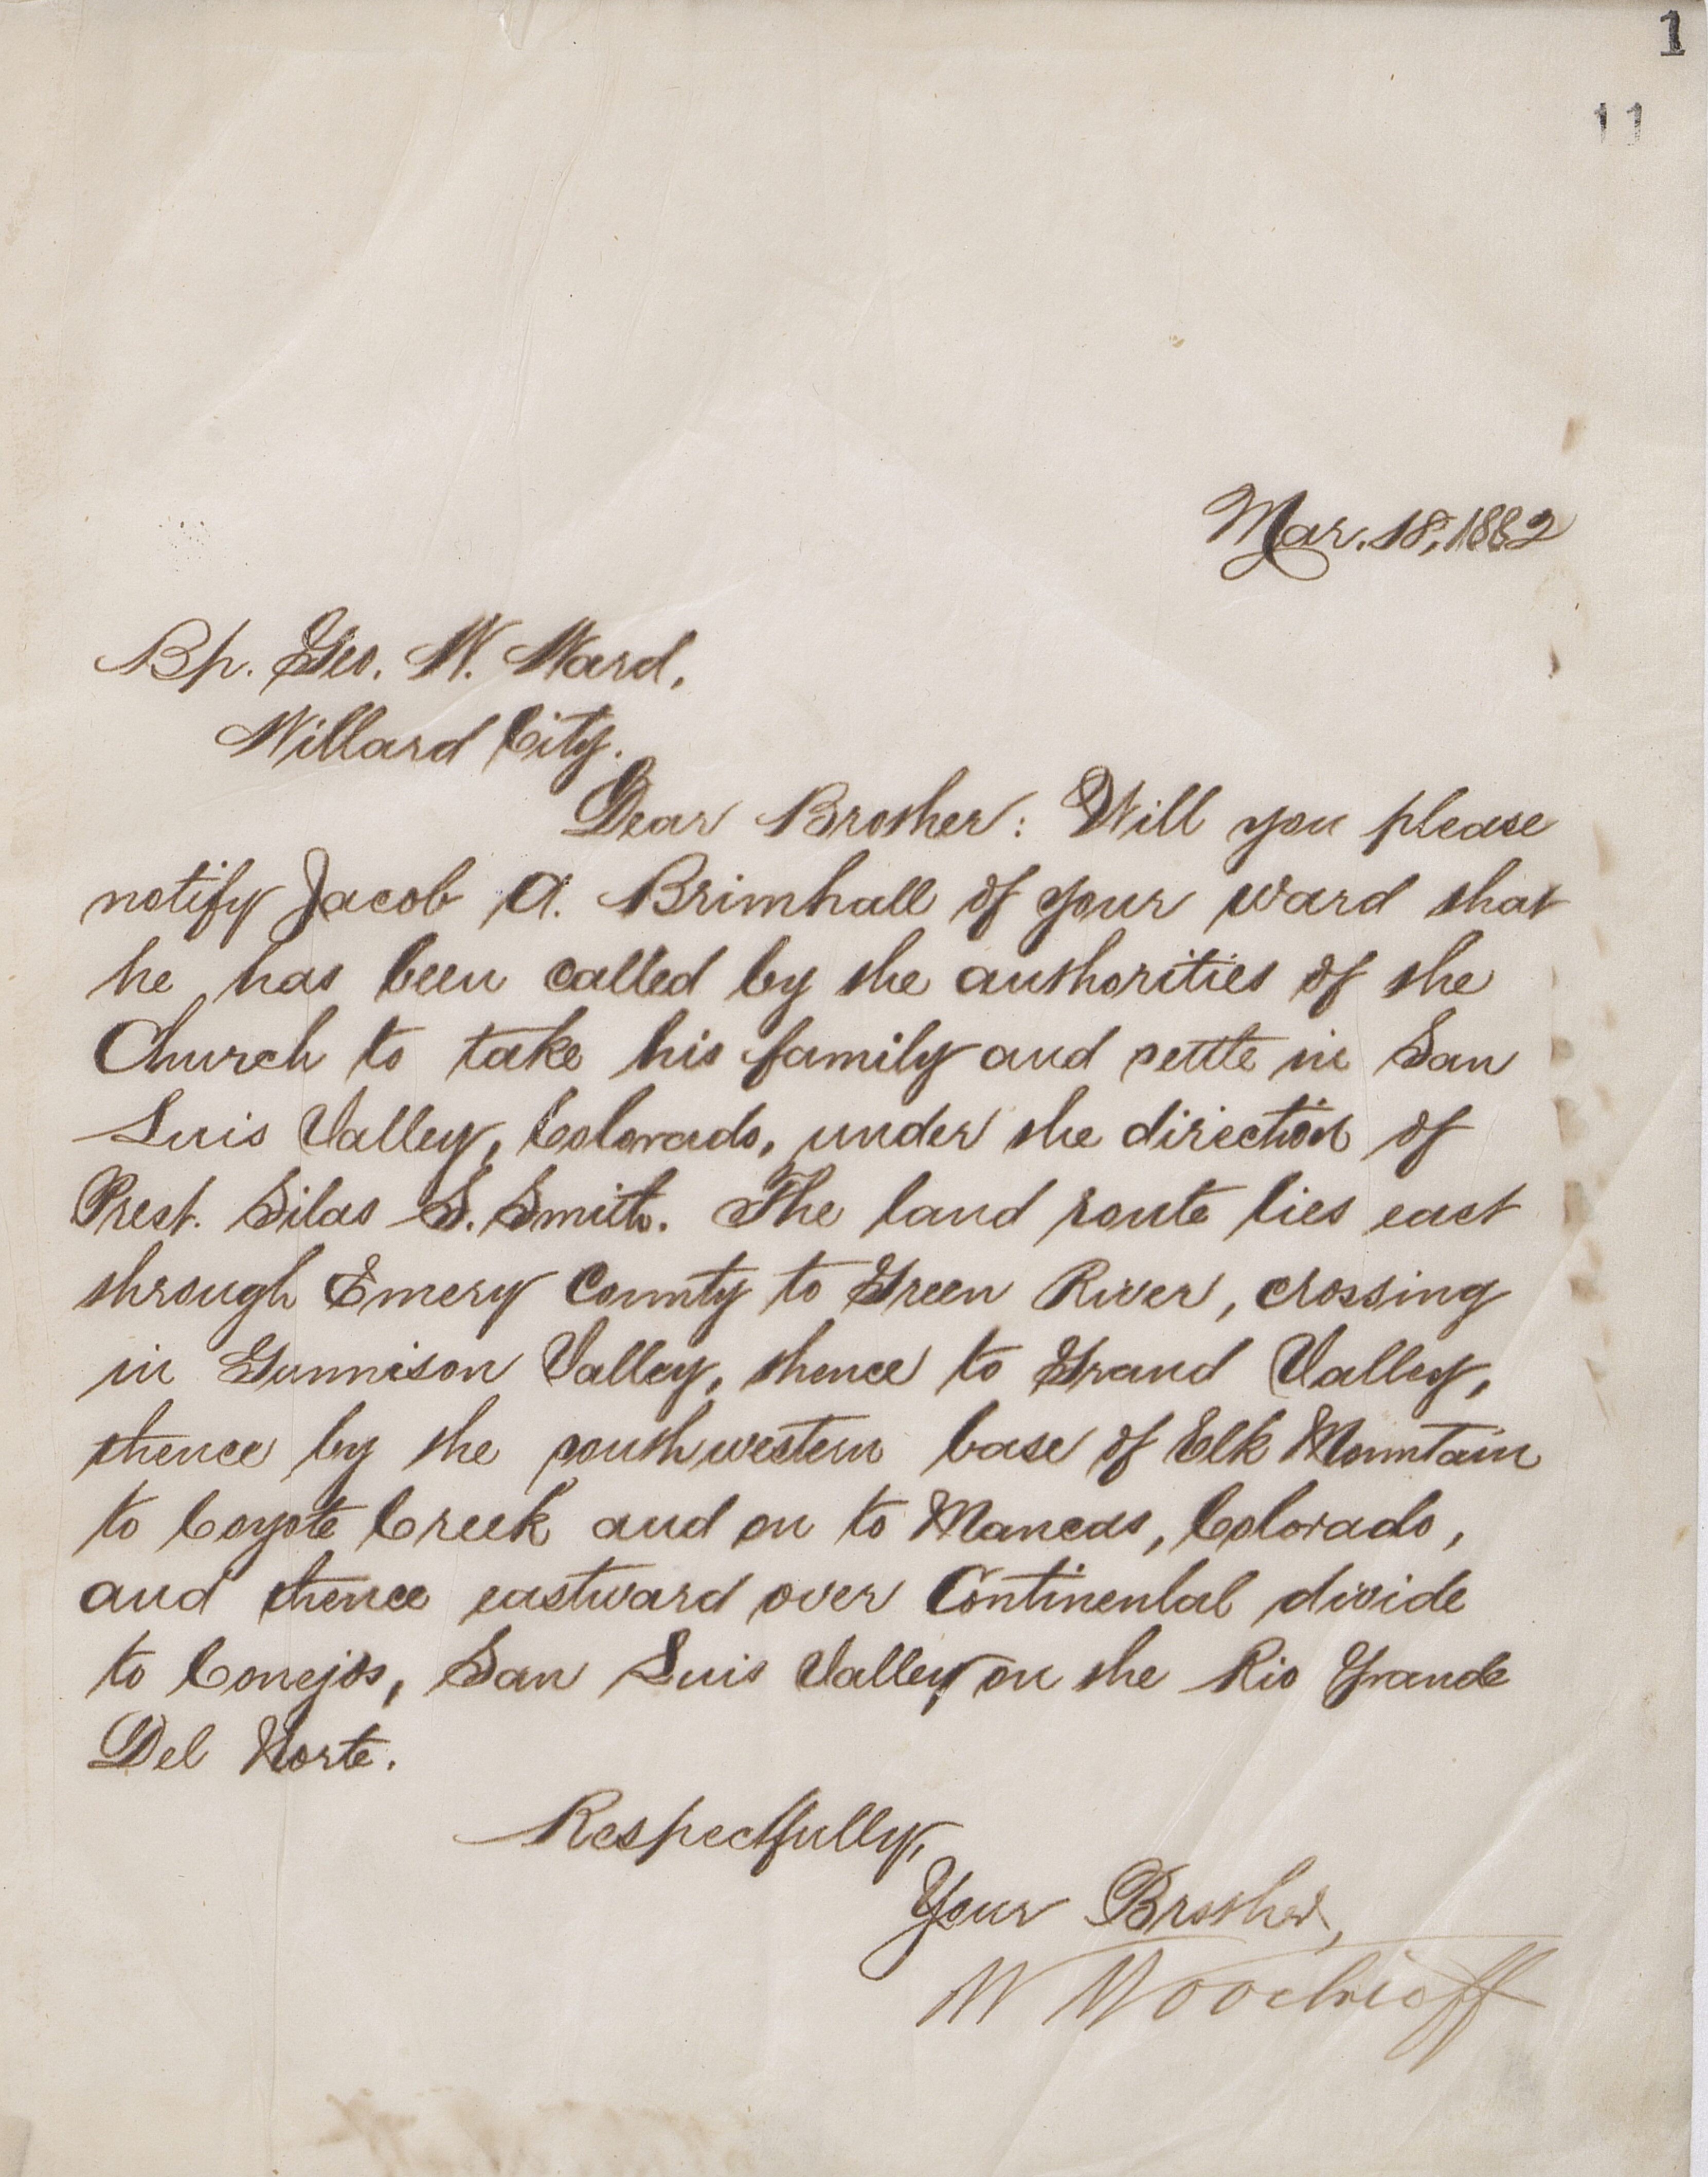 1
11
Mar. 18, 1882
Bp. Geo. W. Ward,
Willard City.
Dear Brother: Will you please
notify Jacob A. Brimhall of your ward that
he has been called by the authorities of the
Church to take his family and settle in San
Luis Valley, Colorado, under the direction of
Prest. Silas S. Smith. The land route lies east
through Emery County to Green River, crossing
in Gunnison Valley, thence to Grand Valley,
thence by the southwestern base of Elk Mountain
to Coyote Creek and on to Mancas, Colorado,
and thence eastward over Continental divide
to Conejos, San Luis Valley on the Rio Grande
Del Norte.
Respectfully,
Your Brother,
W Woodruff